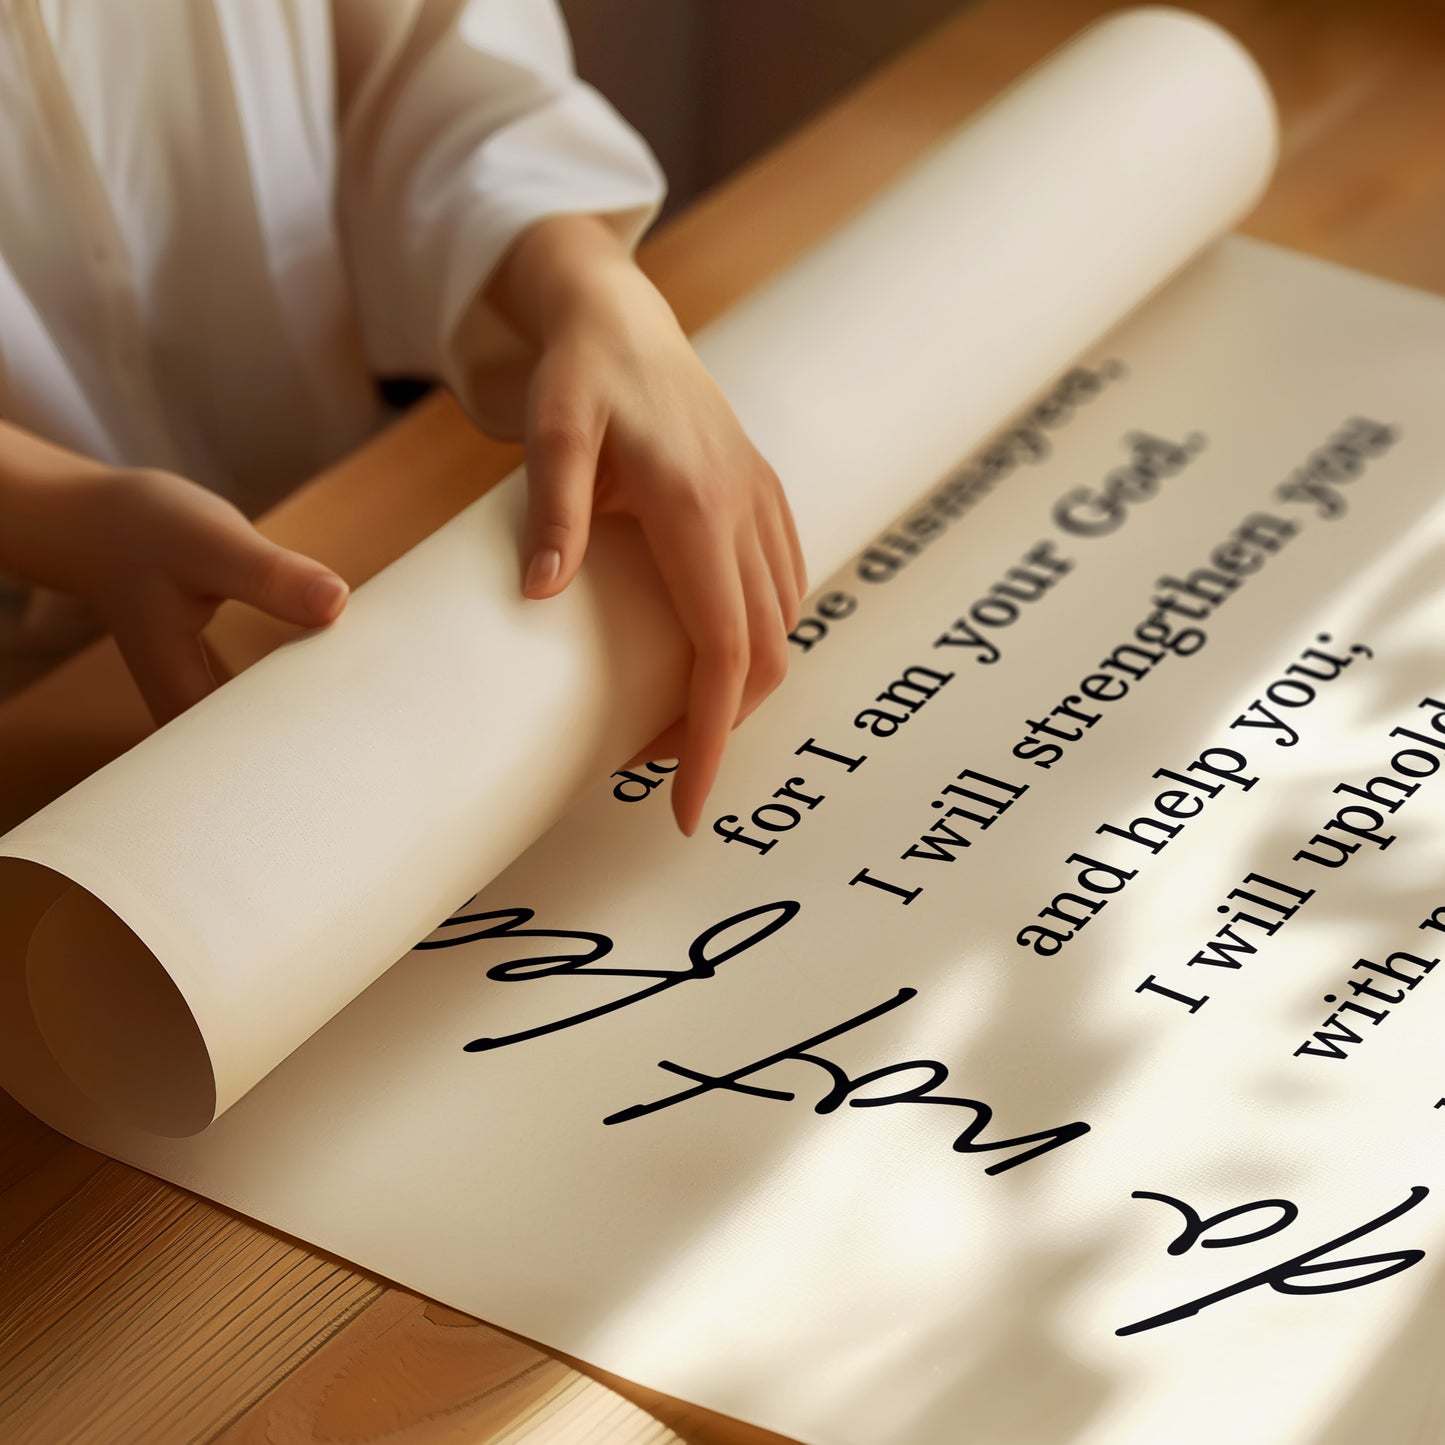 be dismayes,
for I am your God.
I will strengthen you
and help you;
I will uphold
with
Do not